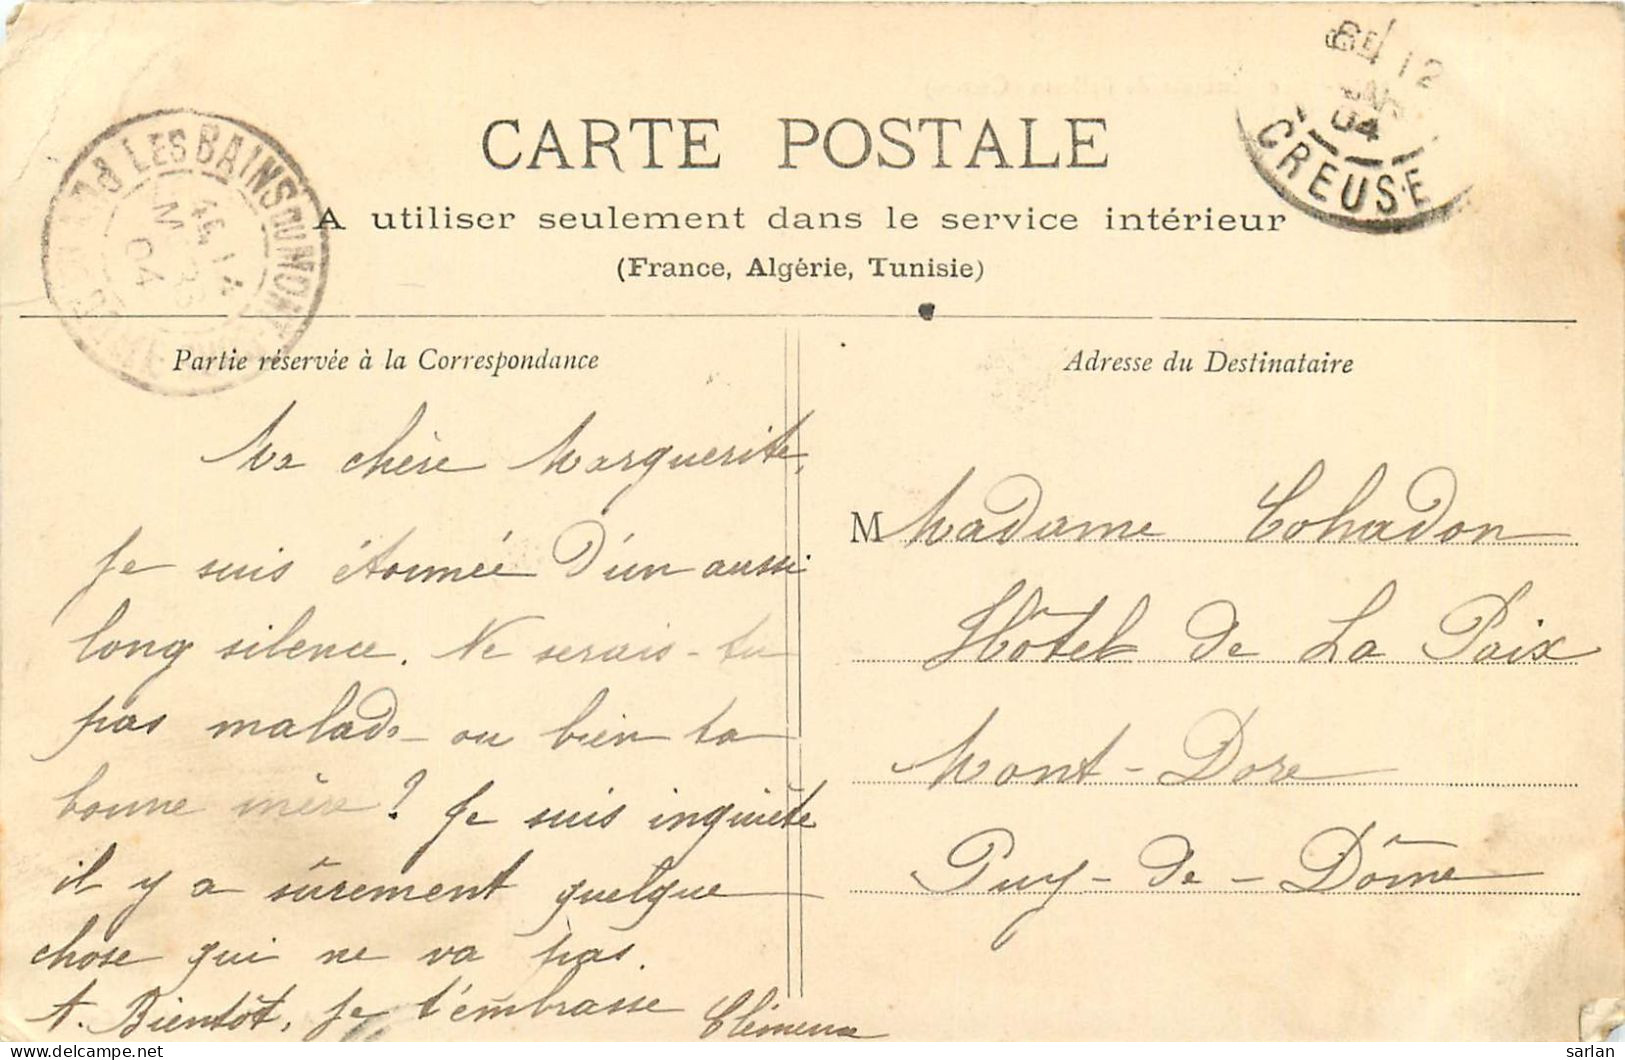 CARTE POSTALE
A utiliser seulement dans le service intérieur
(France, Algérie, Tunisie)
LES BAINS DU MONT
04
12
04
CREUSE
Partie réservée à la Correspondance
Ma chère Marguerite,
Je suis étonnée d'un aussi
long silence. Ne serais-tu
pas malade ou bien ta
bonne mère? Je suis inquiète
il y a sûrement quelque
chose qui ne va pas.
A. Bientôt, je t'embrasse
Clémence
Adresse du Destinataire
M Madame Cohadon
Hôtel de La Paix
Mont-Dore
Puy-de-Dôme
delcampe.net
sarlan